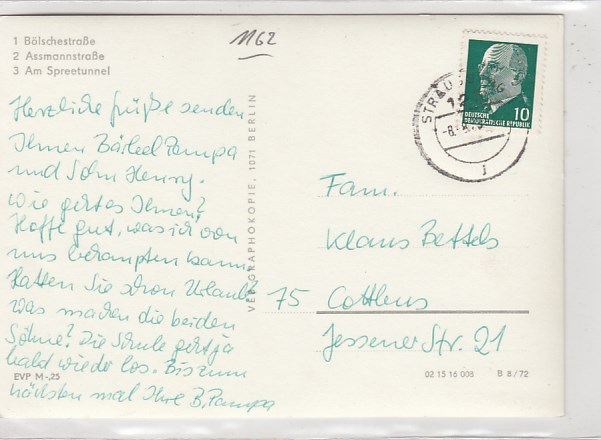 1 Bölschestraße
2 Assmannstraße
3 Am Spreetunnel
1162
Herzliche Grüße senden
Ihnen Bärbel Pampa
und Sohn Henry.
Wie geht es Ihnen?
Hoffe gut, was ich von
uns behaupten kann.
Hatten Sie schon Urlaub?
Was machen die beiden
Söhne? Die Schule geht ja
bald wieder los. Bis zum
nächsten mal Ihre B. Pampa
EVP M-,25
VEB GRAPHOKOPIE, 1071 BERLIN
STRAUS
DEUTSCHE
DEMOKRATISCHE REPUBLIK
10
Fam.
Klaus Bettels
75 Cottbus
Jessener Str. 21
02 15 16 008 B 8/72